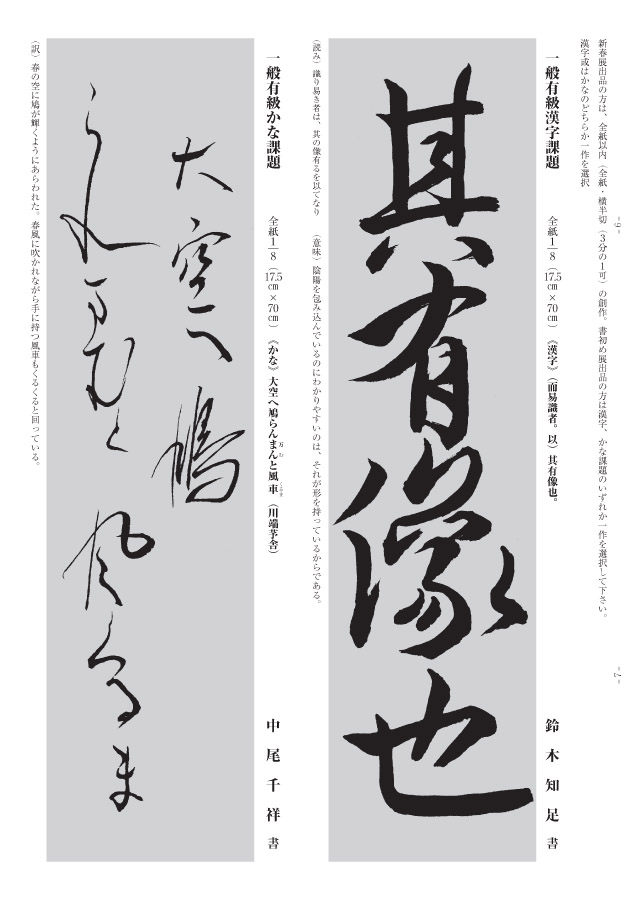 新春展出品の方は、全紙以内（全紙・横半切（3分の1可）の創作。書初め展出品の方は漢字、かな課題のいずれか一作を選択して下さい。
漢字或はかなのどちらか一作を選択
-6-
-7-
一般有級漢字課題 全紙1/8（17.5㎝×70㎝）《漢字》（而易識者。以）其有像也。 鈴木知足 書
其有像也
（読み）識り易き者は、其の像有るを以てなり （意味）陰陽を包み込んでいるのにわかりやすいのは、それが形を持っているからである。
一般有級かな課題 全紙1/8（17.5㎝×70㎝）《かな》大空へ鳩らんまんと風車（川端茅舎） 中尾千祥 書
万 わ くるま
大空へ鳩
らんまんと風くるま
（訳）春の空に鳩が輝くようにあらわれた。春風に吹かれながら手に持つ風車もくるくると回っている。